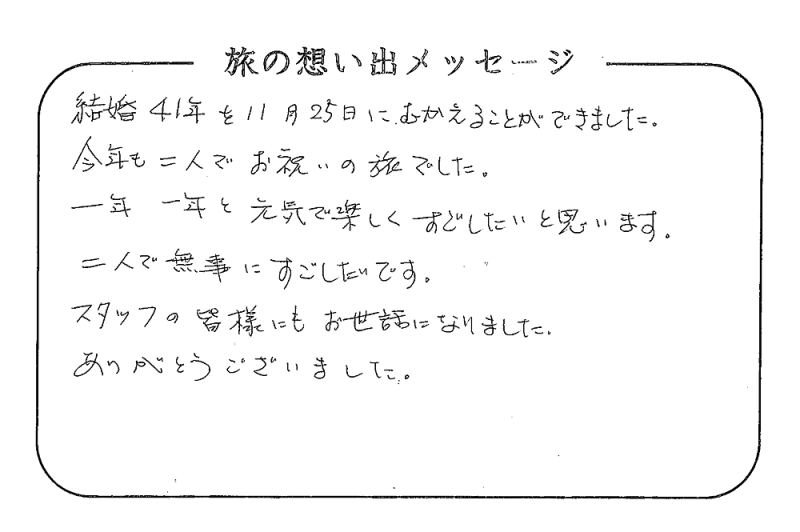 旅の想い出メッセージ
結婚41年を11月25日にむかえることができました。
今年も二人でお祝いの旅でした。
一年一年と元気で楽しくすごしたいと思います。
二人で無事にすごしたいです。
スタッフの皆様にもお世話になりました.
ありがとうございました。